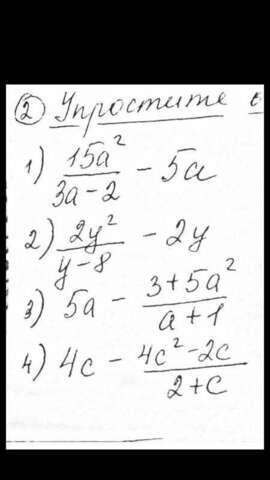 ② Упростите
1) 15a²/(3a-2) - 5a
2) 2y²/(y-8) - 2y
3) 5a - (3+5a²)/(a+1)
4) 4c - (4c²-2c)/(2+c)